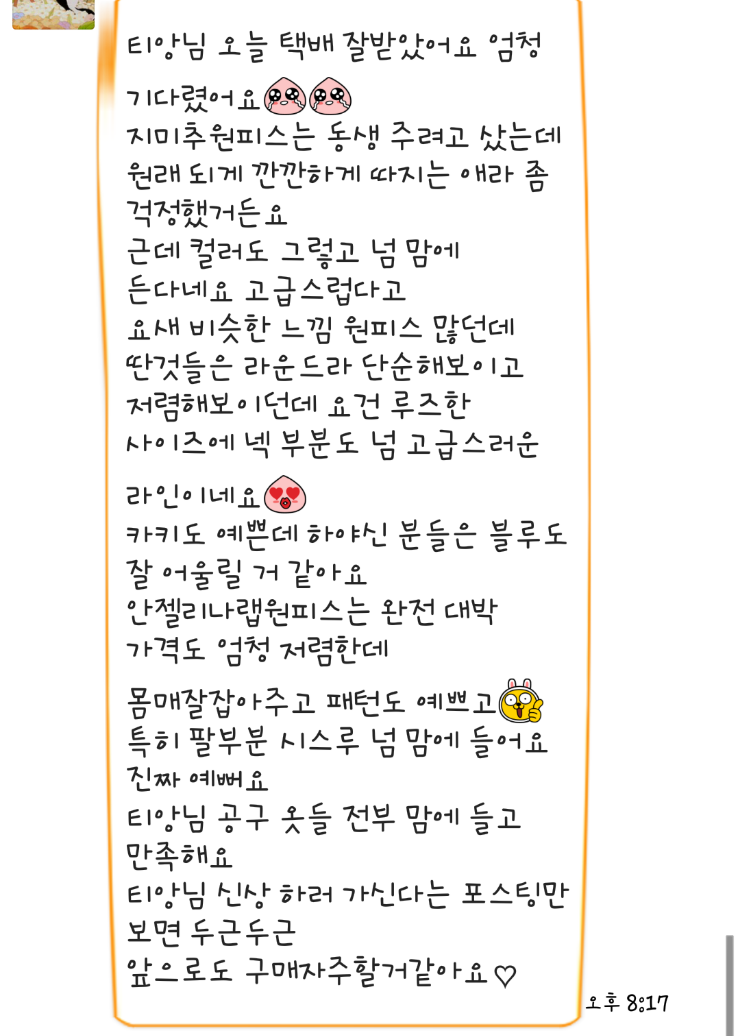 티앙님 오늘 택배 잘받았어요 엄청
기다렸어요
지미추원피스는 동생 주려고 샀는데
원래 되게 깐깐하게 따지는 애라 좀
걱정했거든요
근데 컬러도 그렇고 넘 맘에
든다네요 고급스럽다고
요새 비슷한 느낌 원피스 많던데
딴것들은 라운드라 단순해보이고
저렴해보이던데 요건 루즈한
사이즈에 넥 부분도 넘 고급스러운
라인이네요
카키도 예쁜데 하야신 분들은 블루도
잘 어울릴 거 같아요
안젤리나랩원피스는 완전 대박
가격도 엄청 저렴한데
몸매잘잡아주고 패턴도 예쁘고
특히 팔부분 시스루 넘 맘에 들어요
진짜 예뻐요
티앙님 공구 옷들 전부 맘에 들고
만족해요
티앙님 신상 하러 가신다는 포스팅만
보면 두근두근
앞으로도 구매자주할거같아요♡
오후 8:17